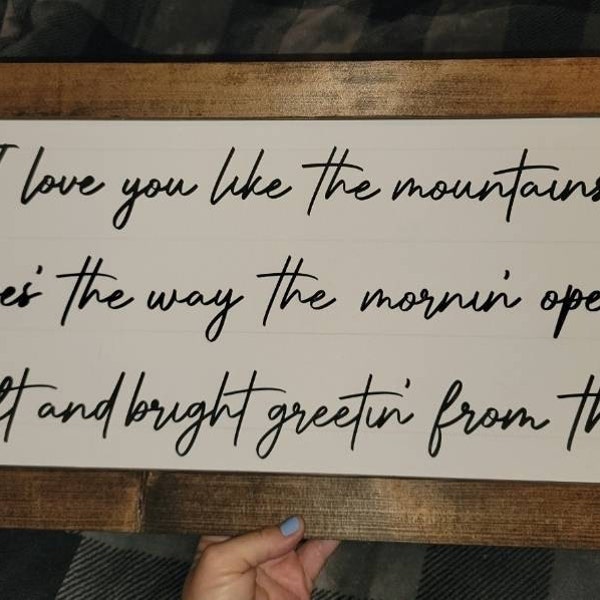 I love you like the mountains
es' the way the mornin' ope
ft and bright greetin' from th